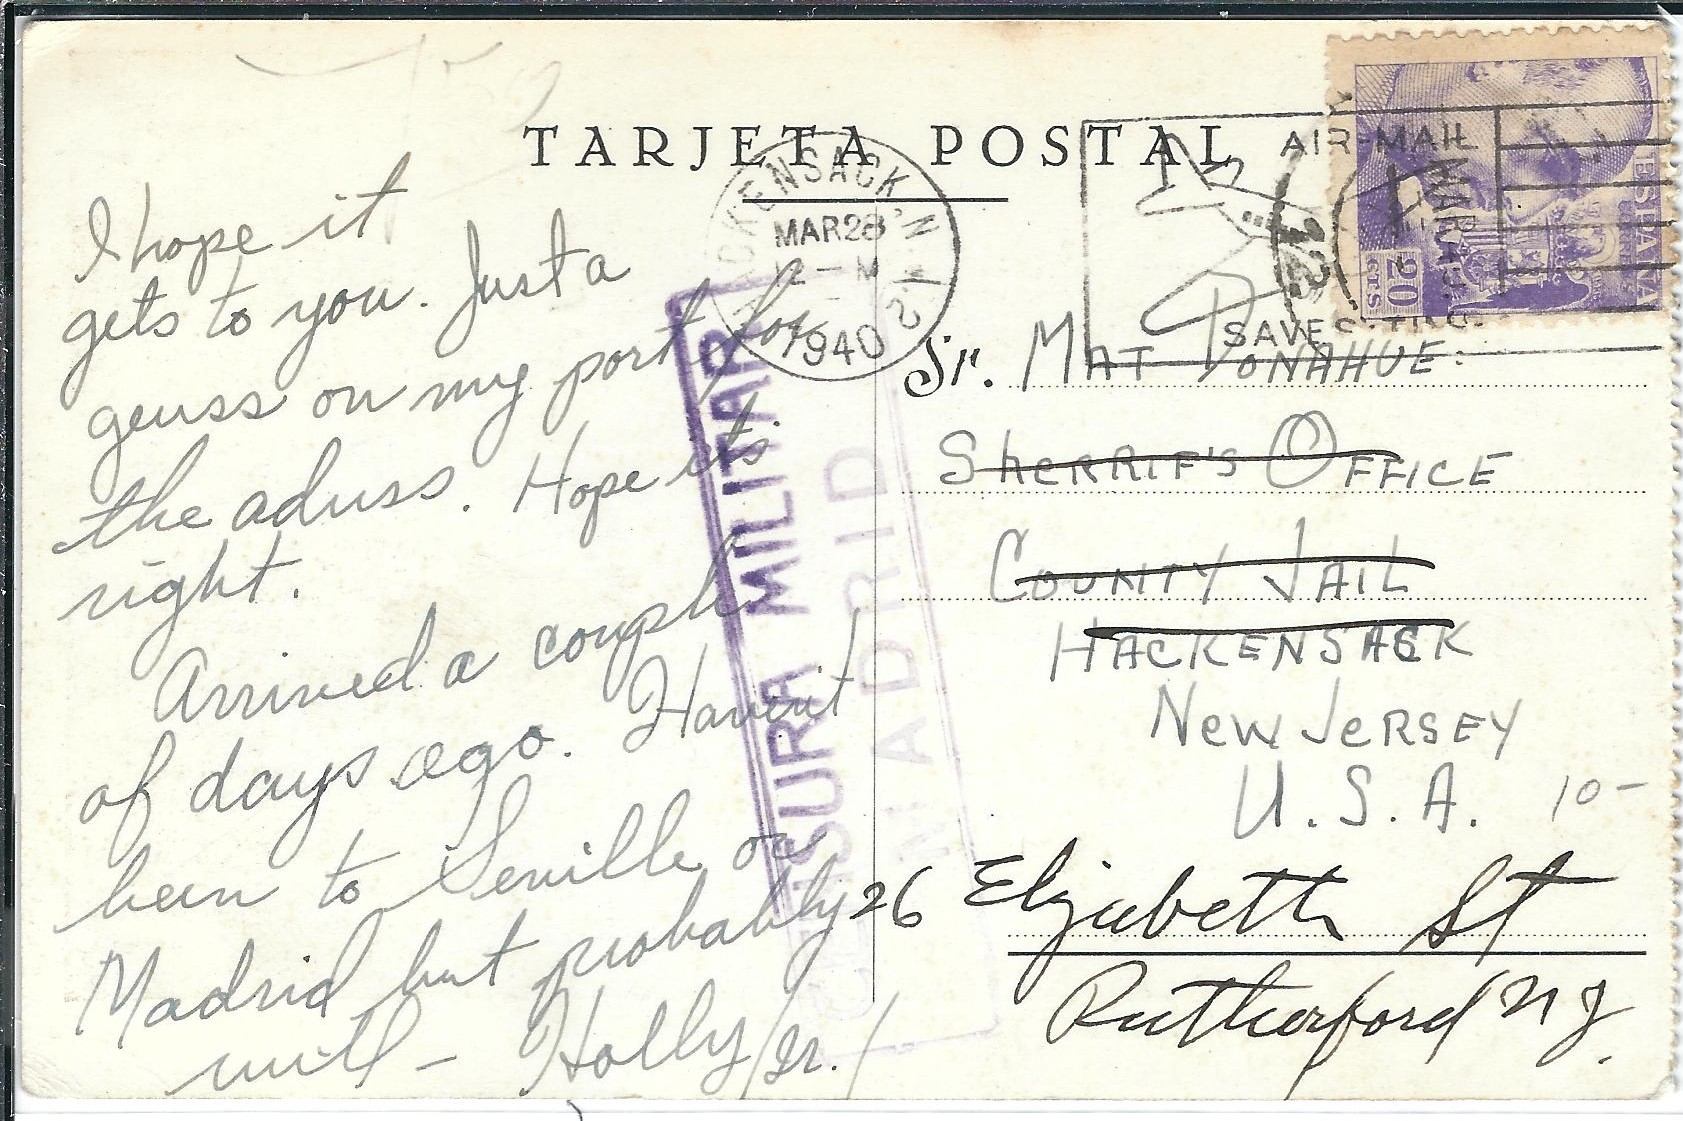 TARJETA POSTAL
I hope it
gets to you. Just a
geuss on my part for
the adress. Hope it's
right.
Arrived a couple
of days ago. Haven't
been to Seville or
Madrid but probably
will - Holly/Jr./
HACKENSACK, N.J.
MAR 28
12 - M
1940
AIR-MAIL
SAVES TIME
ESPAÑA
20 CTS
CENSURA MILITAR
MADRID
Sr. MAT DONAHUE.
SHERRIF'S OFFICE
COUNTY JAIL
HACKENSACK
NEW JERSEY
U.S.A.
10-
26 Elizabeth St
Rutherford NJ.